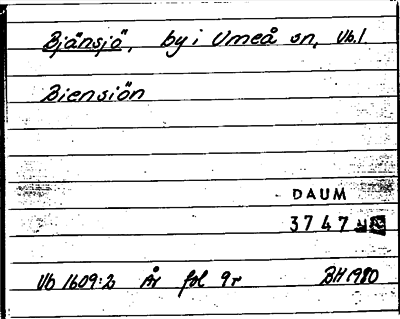 Bjänsjö, by i Umeå sn, Vb.l.
Biensiön
DAUM
3747
Vb 1609:2 År fol 9r BH 1980